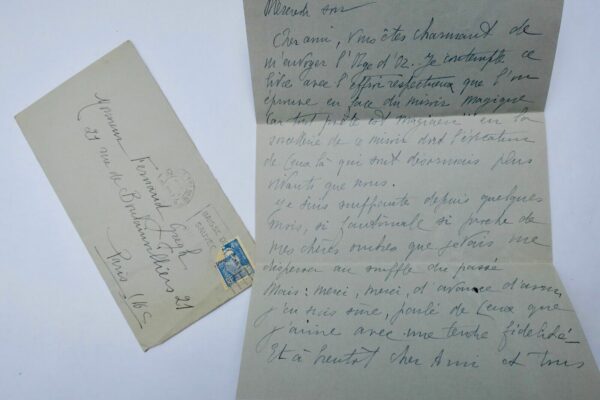 Mercredi soir
Cher ami, Vous êtes charmant de
m'envoyer l'Age d'Or. Je contemple ce
livre avec l'effroi respectueux que l'on
éprouve en face du miroir magique
tout poète est magicien en la
sorcellerie de ce miroir dont l'évocation
de ceux là qui sont désormais plus
vivants que nous.
Je suis souffrante depuis quelques
mois, si fantômale si proche de
mes chères ombres que j'étais me
disperser au souffle du passé
Mais: merci, merci, d'avance d'avoir,
j'en suis sûre, parlé de ceux que
j'aime avec une tendre fidélité
Et à bientôt cher Ami et tous
Monsieur Fernand Gregh
21 rue de Boulainvilliers 21
Paris 16e